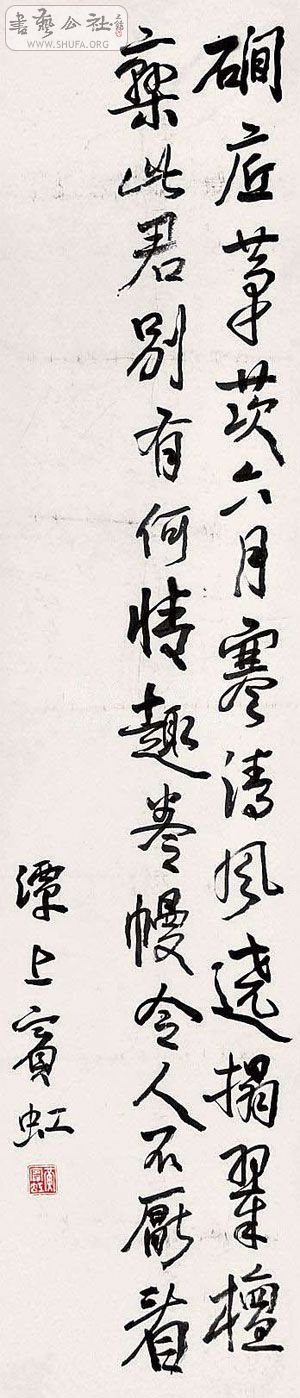 磵底茅茨六月寒清風遶榻翠檀
欒此君別有何情趣卷幔令人不厭看
潭上賓虹
書藝公社
WWW.SHUFA.ORG